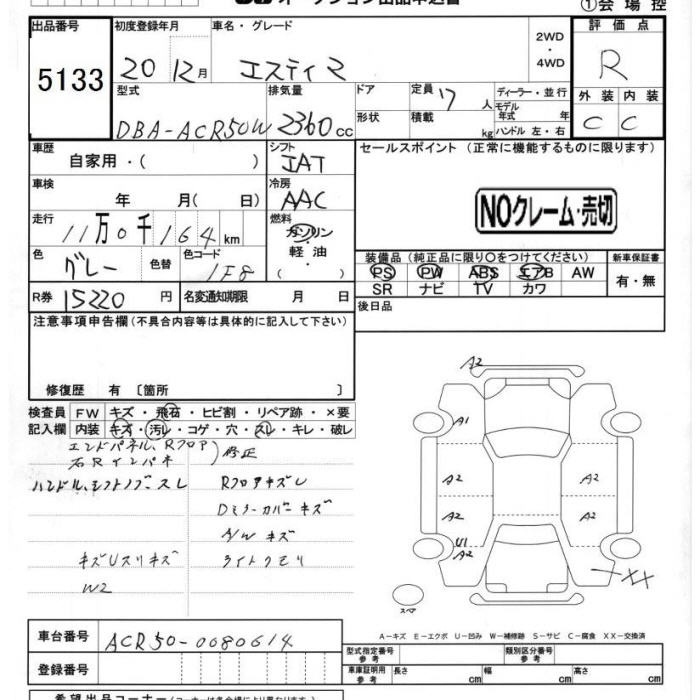 ①会場控
出品番号 初度登録年月 車名・グレード 2WD・4WD 評価点
5133 20 12月 エスティマ R
型式 排気量 ドア 定員 17人 ディーラー・並行
モデル年式 年 外装 内装
DBA-ACR50W 2360cc 形状 積載 kg ハンドル 左・右 C C
車歴 シフト セールスポイント (正常に機能するものに限ります)
自家用・( ) IAT
車検 冷房
年 月( 日) AAC
NOクレーム・売切
走行 燃料
11万0千164km ガソリン・軽油・( )
色 色替 色コード 装備品(純正品に限り○をつけてください) 新車保証書
グレー 1F8 PS PW ABS エアB AW 有・無
SR ナビ TV カワ
R券 15220円 名変通知期限 月 日 後日品
注意事項申告欄(不具合内容等は具体的に記入して下さい)
修復歴 有 〔箇所 〕
検査員 FW キズ・飛石・ヒビ割・リペア跡・×要
記入欄 内装 キズ・汚レ・コゲ・穴・スレ・キレ・破レ
エンドパネル、Rフロア
右Rインパネ 修正
ハンドル、シフトノブースレ RフロアキズU
Dミラーカバーキズ
A/Wキズ
キズUスリキズ ライトクモリ
W2
A2
A1
A2 A2
A2 A2
U1
A2
XX
スペア
A-キズ E-エクボ U-凹み W-補修跡 S-サビ C-腐食 XX-交換済
車台番号 ACR50-0080614
登録番号
型式指定番号 参考 類別区分番号 参考
車庫証明用 参考 長さ cm 幅 cm 高さ cm